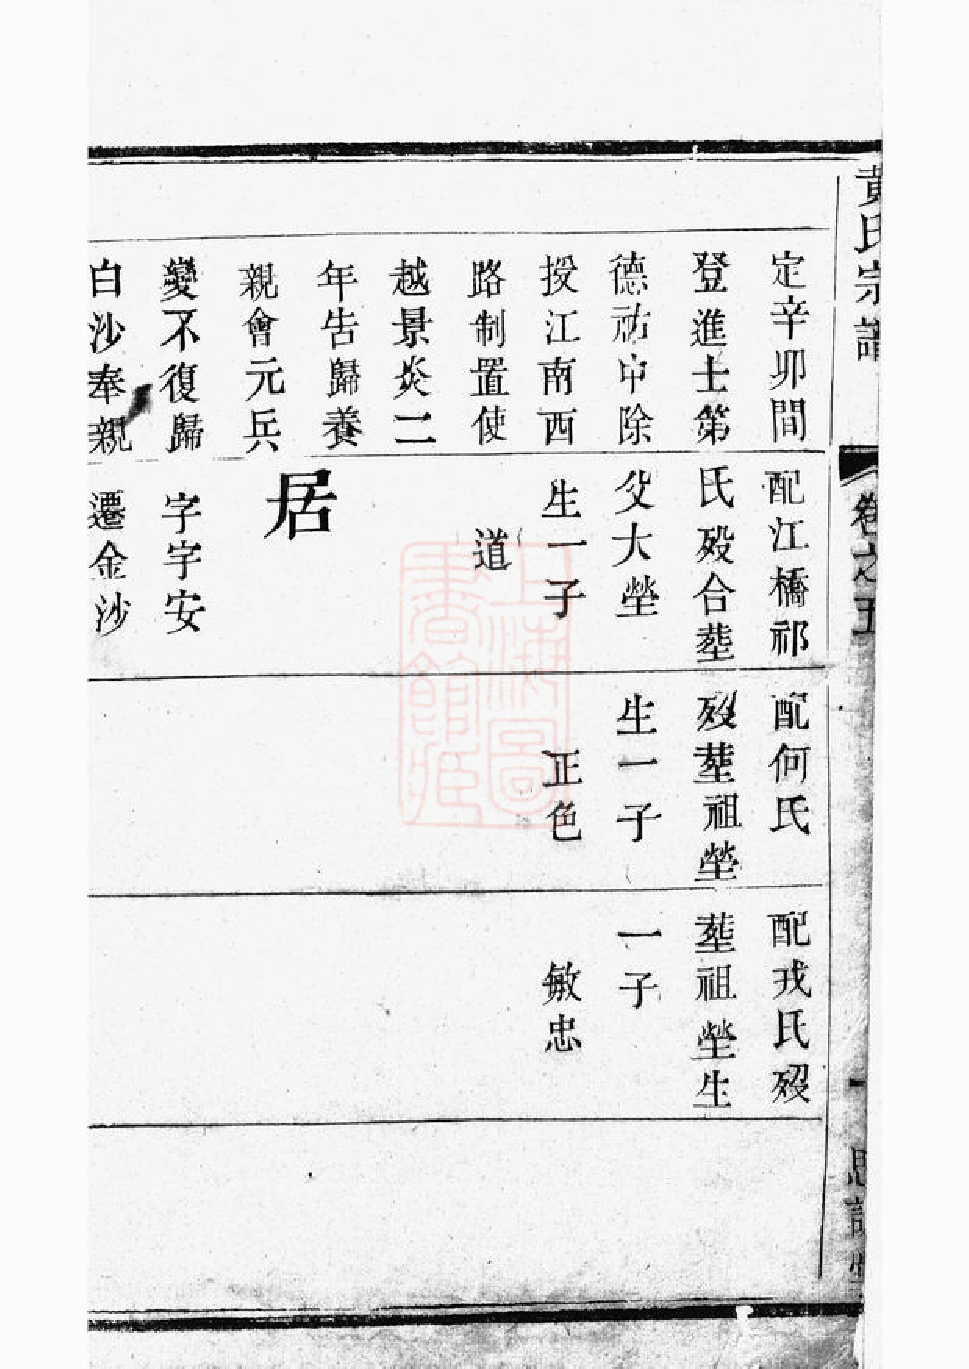 黃氏宗譜
卷之五
定辛卯間
登進士第
德祐中除
授江南西
路制置使
越景炎二
年告歸養
親會元兵
變不復歸
白沙奉親
配江橋祁
氏歿合塟
父大塋
生一子
道
居
字字安
遷金沙
配何氏
歿塟祖塋
生一子
正色
配戎氏歿
塟祖塋生
一子
敏忠
上海圖
書館藏